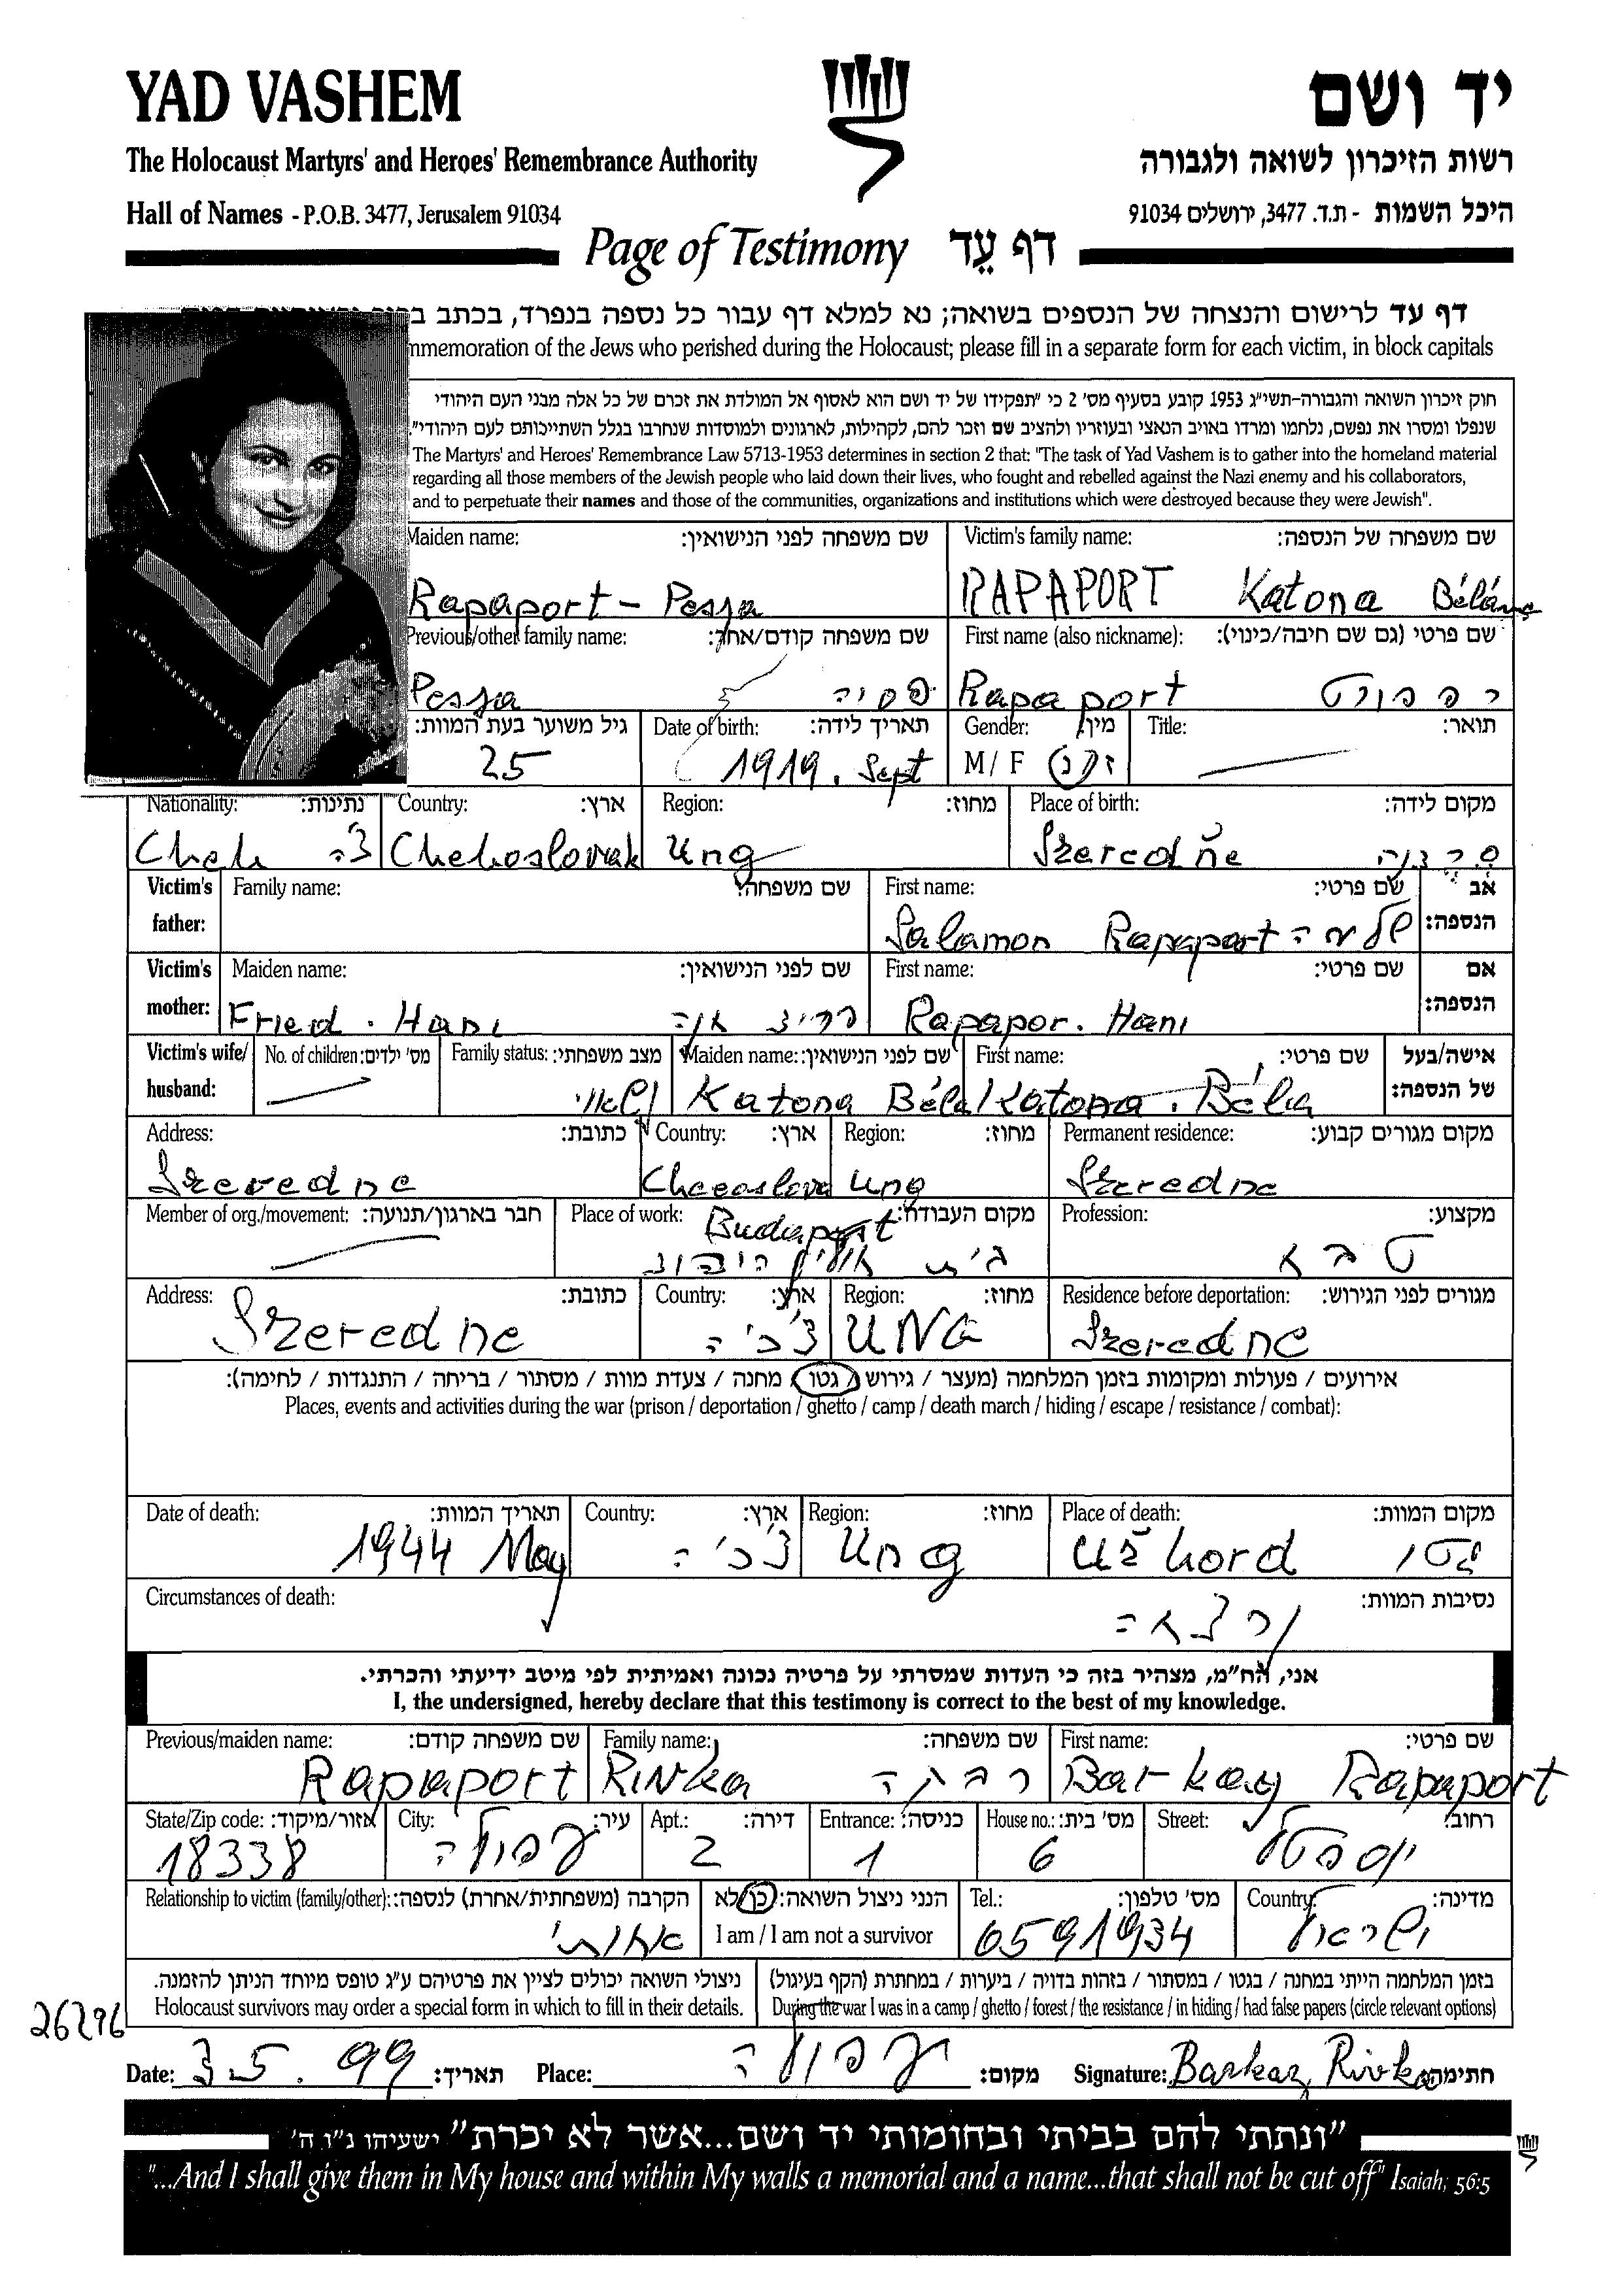 YAD VASHEM
יד ושם
The Holocaust Martyrs' and Heroes' Remembrance Authority
רשות הזיכרון לשואה ולגבורה
Hall of Names - P.O.B. 3477, Jerusalem 91034
היכל השמות - ת.ד. 3477, ירושלים 91034
Page of Testimony דף עֵד
דף עד לרישום והנצחה של הנספים בשואה; נא למלא דף עבור כל נספה בנפרד, בכתב
nmemoration of the Jews who perished during the Holocaust; please fill in a separate form for each victim, in block capitals
חוק זיכרון השואה והגבורה-תשי"ג 1953 קובע בסעיף מס' 2 כי "תפקידו של יד ושם הוא לאסוף אל המולדת את זכרם של כל אלה מבני העם היהודי
שנפלו ומסרו את נפשם, נלחמו ומרדו באויב הנאצי ובעוזריו ולהציב שם וזכר להם, לקהילות, לארגונים ולמוסדות שנחרבו בגלל השתייכותם לעם היהודי".
The Martyrs' and Heroes' Remembrance Law 5713-1953 determines in section 2 that: "The task of Yad Vashem is to gather into the homeland material
regarding all those members of the Jewish people who laid down their lives, who fought and rebelled against the Nazi enemy and his collaborators,
and to perpetuate their names and those of the communities, organizations and institutions which were destroyed because they were Jewish".
Maiden name: שם משפחה לפני הנישואין: Victim's family name: שם משפחה של הנספה:
Rapaport - Pessa RAPAPORT Katona Béláné
Previous/other family name: שם משפחה קודם/אחר: First name (also nickname): שם פרטי (גם שם חיבה/כינוי):
Pessa פסיה Rapaport רפפורט
גיל משוער בעת המוות: Date of birth: תאריך לידה: Gender: מין: Title: תואר:
25 1919. Sept M / F ז/נ
Nationality: נתינות: Country: ארץ: Region: מחוז: Place of birth: מקום לידה:
Cheh צ'כ Chehoslovak Ung Szeredňe סרדנה
Victim's father: Family name: שם משפחה: First name: שם פרטי: אב הנספה:
Salamon Rapaport שלמה
Victim's mother: Maiden name: שם לפני הנישואין: First name: שם פרטי: אם הנספה:
Fried. Hani פריד Rapapor. Hani
Victim's wife/ husband: No. of children: מס' ילדים: Family status: מצב משפחתי: Maiden name: שם לפני הנישואין: First name: שם פרטי: אישה/בעל של הנספה:
נשואי Katona Béla Katona. Béla
Address: כתובת: Country: ארץ: Region: מחוז: Permanent residence: מקום מגורים קבוע:
Szeredne Checoslova Ung Szeredne
Member of org./movement: חבר בארגון/תנועה: Place of work: מקום העבודה: Profession: מקצוע:
Budapest
בית
Address: כתובת: Country: ארץ: Region: מחוז: Residence before deportation: מגורים לפני הגירוש:
Szeredne צ'כיה UNG Szeredne
אירועים / פעולות ומקומות בזמן המלחמה (מעצר / גירוש / גטו / מחנה / צעדת מוות / מסתור / בריחה / התנגדות / לחימה):
Places, events and activities during the war (prison / deportation / ghetto / camp / death march / hiding / escape / resistance / combat):
Date of death: תאריך המוות: Country: ארץ: Region: מחוז: Place of death: מקום המוות:
1944 May צ'כיה Ung Užhord גטו
Circumstances of death: נסיבות המוות:
נרצחה
אני, הח"מ, מצהיר בזה כי העדות שמסרתי על פרטיה נכונה ואמיתית לפי מיטב ידיעתי והכרתי.
I, the undersigned, hereby declare that this testimony is correct to the best of my knowledge.
Previous/maiden name: שם משפחה קודם: Family name: שם משפחה: First name: שם פרטי:
Rapaport Rivka רבקה Bar-kay Rapaport
State/Zip code: אזור/מיקוד: City: עיר: Apt.: דירה: Entrance: כניסה: House no.: מס' בית: Street: רחוב:
18338 עפולה 2 1 6
Relationship to victim (family/other): הקרבה (משפחתית/אחרת) לנספה: הנני ניצול השואה: כן/לא Tel.: מס' טלפון: Country: מדינה:
אחותי I am / I am not a survivor 6591934 ישראל
ניצולי השואה יכולים לציין את פרטיהם ע"ג טופס מיוחד הניתן להזמנה. בזמן המלחמה הייתי במחנה / בגטו / במסתור / בזהות בדויה / ביערות / במחתרת (הקף בעיגול)
Holocaust survivors may order a special form in which to fill in their details. During the war I was in a camp / ghetto / forest / the resistance / in hiding / had false papers (circle relevant options)
26296
Date: 3.5.99 תאריך: Place: עפולה מקום: Signature: Barkay Rivka חתימה:
"ונתתי להם בביתי ובחומותי יד ושם...אשר לא יכרת" ישעיהו נ"ו ה'
"...And I shall give them in My house and within My walls a memorial and a name...that shall not be cut off" Isaiah, 56:5